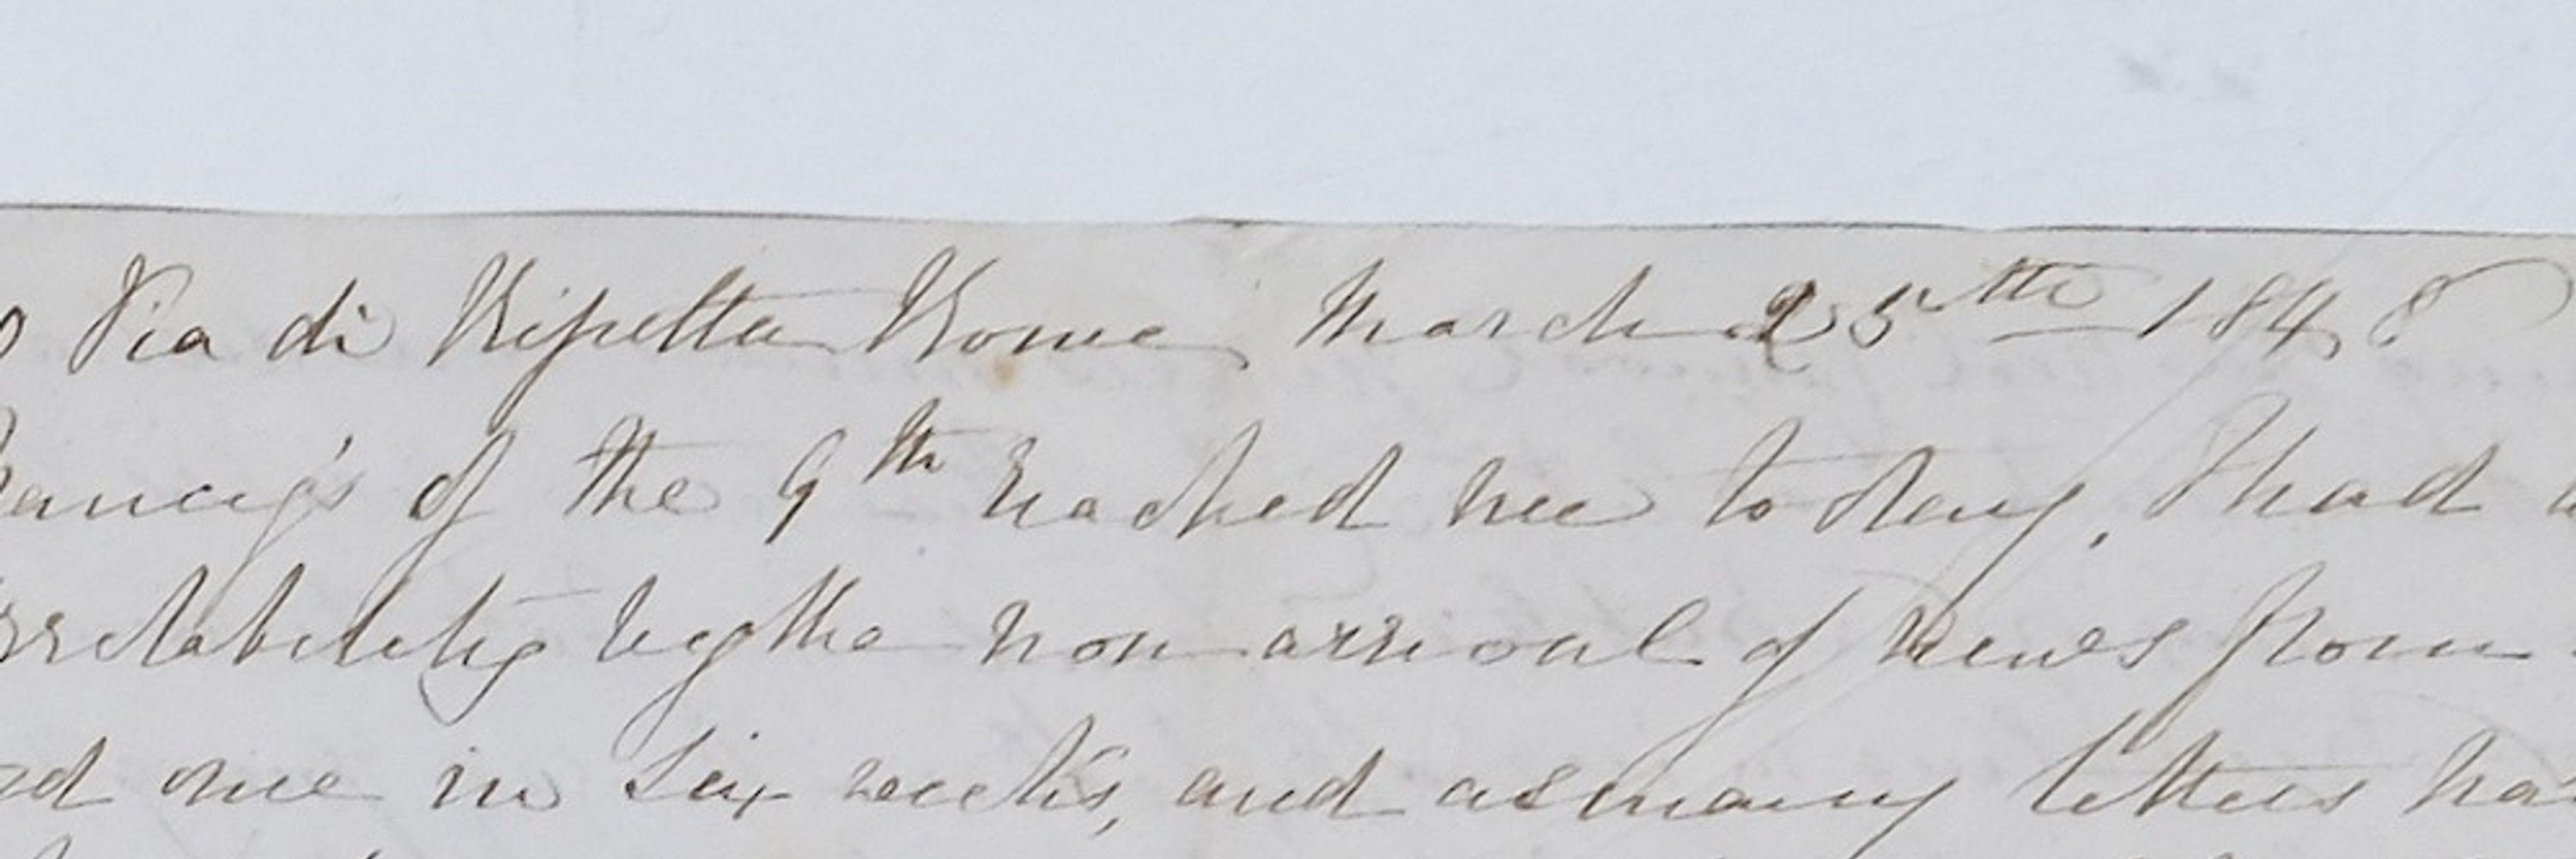 Via di Ripetta Rome March 25th 1848
of the 9th reached me to day, I had
by the non arrival of news from
one in six weeks, and as many letters ha